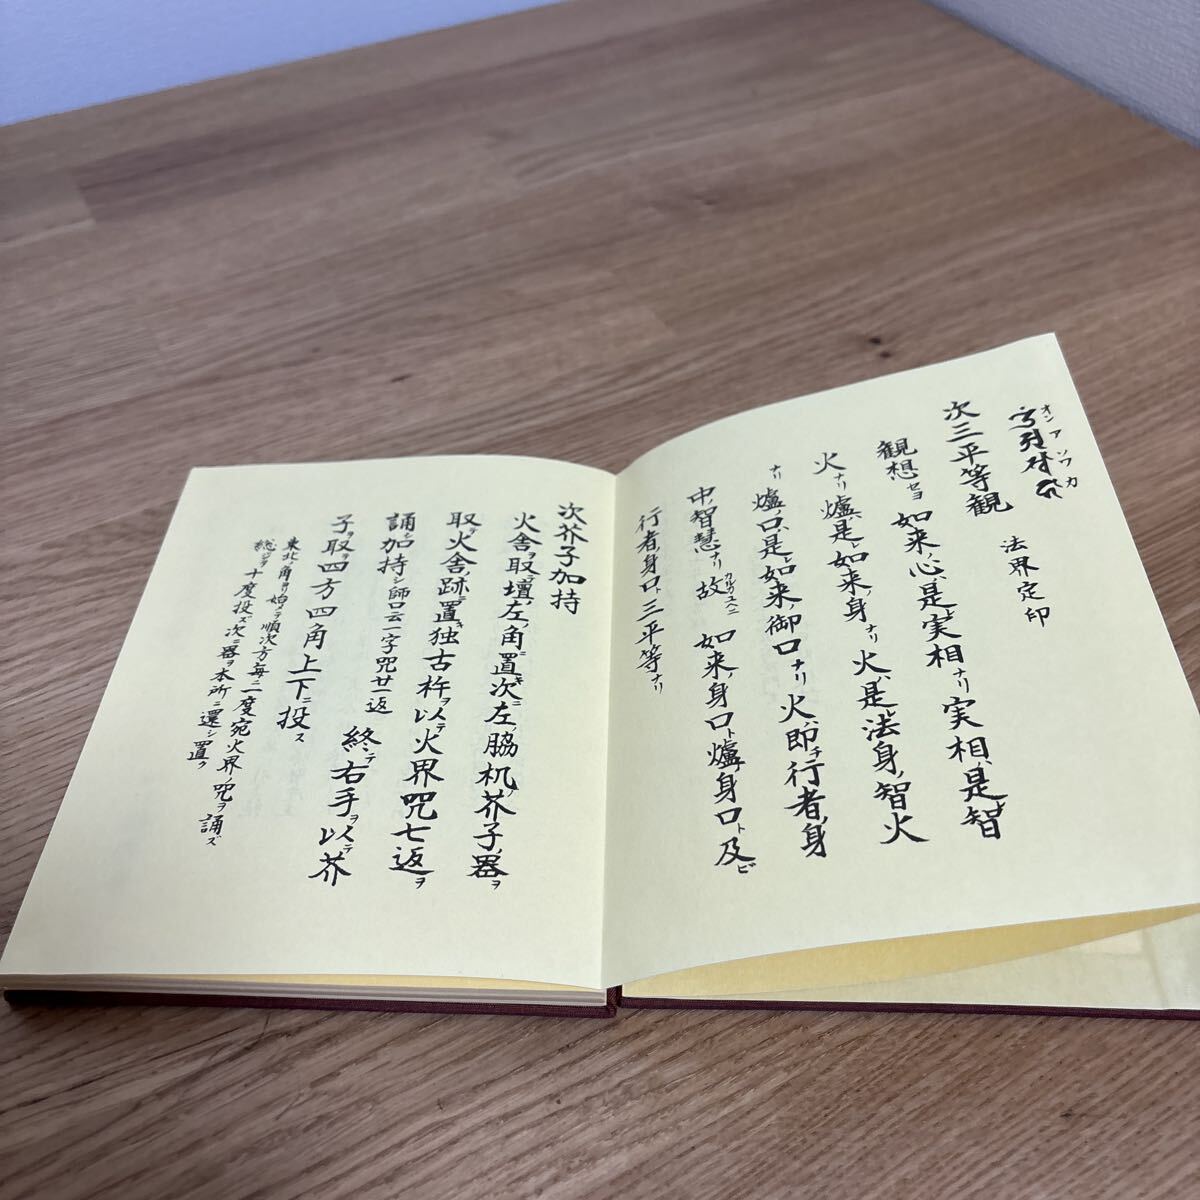 オン ア ソワ カ
次三平等観 法界定印
観想セヨ 如来ノ心ハ是レ実相ナリ実相ハ是レ智
火ナリ爐ハ是レ如来ノ身ナリ火ハ是レ法身ノ智火
ナリ爐ノ口ハ是レ如来ノ御口ナリ火ハ即チ行者ノ身
中ノ智慧ナリ故ニ 如来ノ身口ト爐ノ身口ト及ビ
行者ノ身口ト三平等ナリ
次芥子加持
火舎ヲ取壇ノ左ノ角ニ置キ次ニ左脇机ノ芥子ノ器ヲ
取テ火舎ノ跡ニ置キ独古杵ヲ以テ火界咒七返ヲ
誦シ加持シ師口云一字咒廿一返 終テ右手ヲ以テ芥
子ヲ取ヲ四方四角上下ニ投ス
東北ノ角ヨリ始メテ順次方毎ニ一度宛火界ノ咒ヲ誦ズ
総ジテ十度投ズ次ニ器ヲ本所ニ還シ置ク